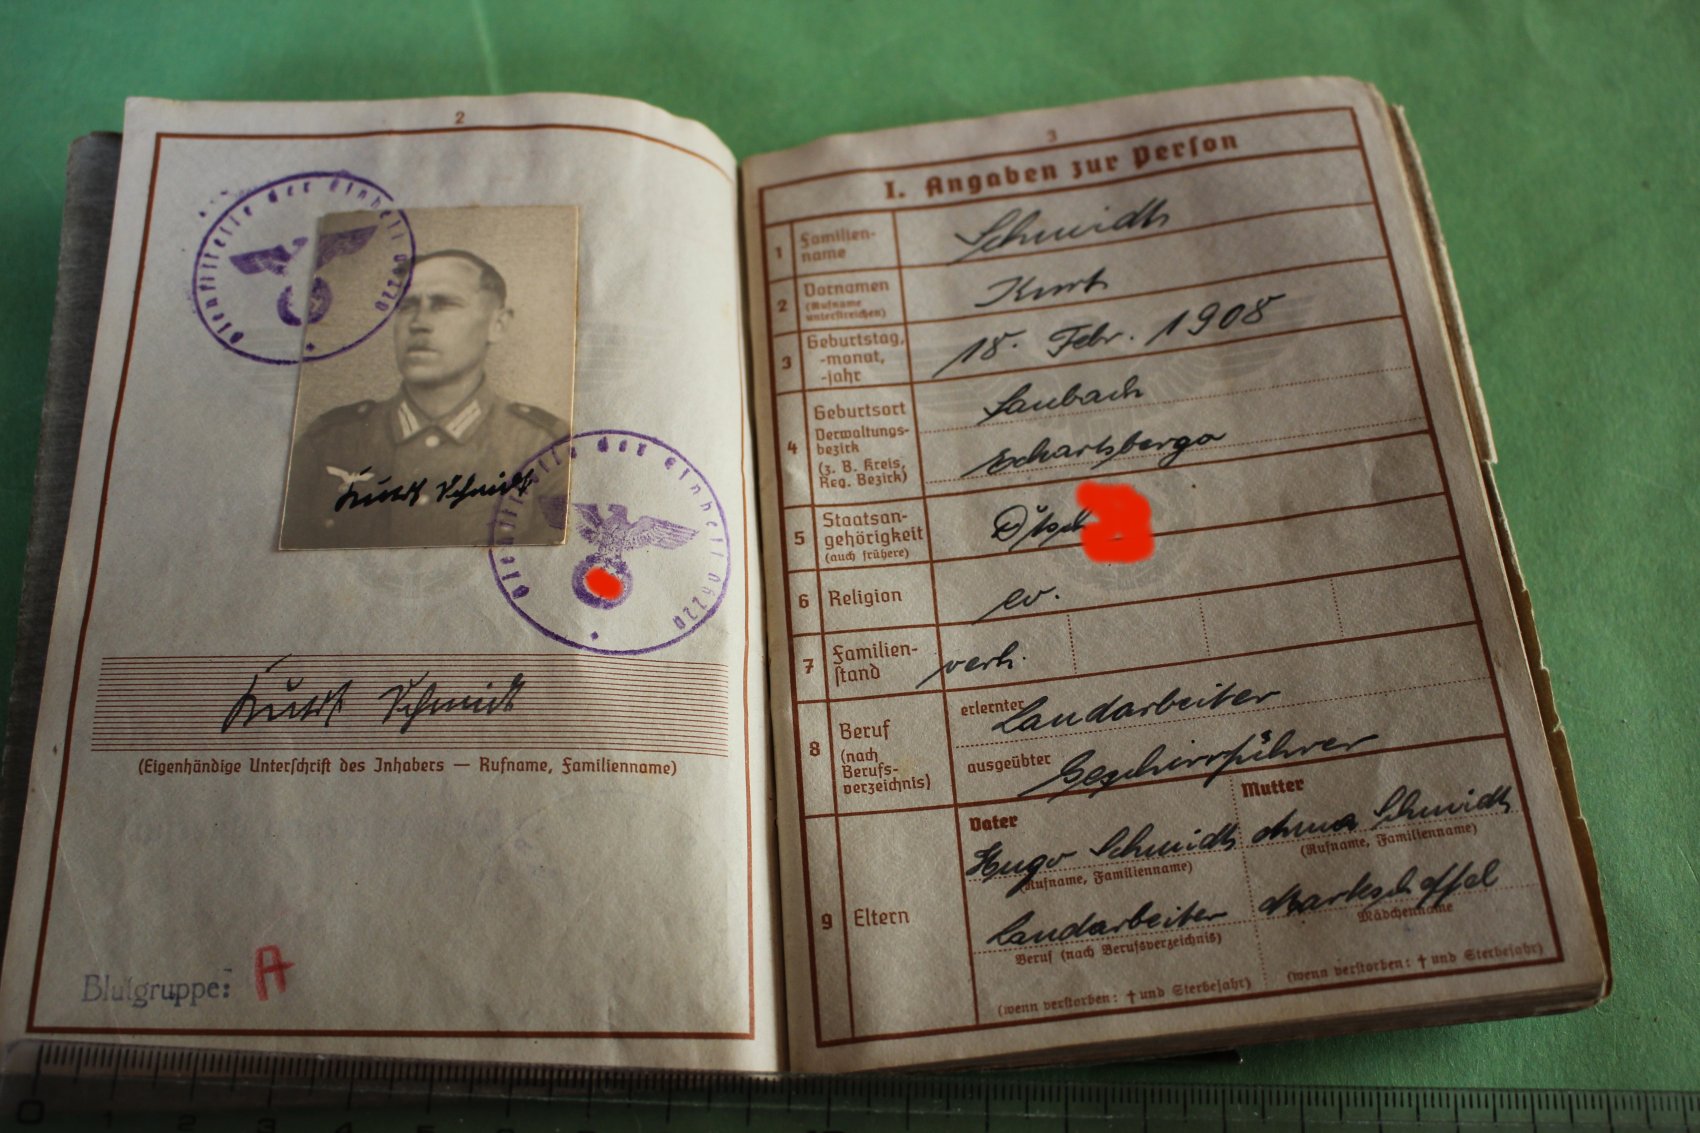 2
Dienststelle der Einheit 06220
Kurt Schmidt
Dienststelle der Einheit 06220
Kurt Schmidt
(Eigenhändige Unterschrift des Inhabers — Rufname, Familienname)
Blutgruppe: A
3
I. Angaben zur Person
1 Familien-
name
Schmidt
2 Vornamen
(Rufname
unterstreichen)
Kurt
3 Geburtstag,
-monat,
-jahr
18. Febr. 1908
4 Geburtsort
Verwaltungs-
bezirk
(z. B. Kreis,
Reg. Bezirk)
Saubach
Eckartsberga
5 Staatsan-
gehörigkeit
(auch frühere)
6 Religion
ev.
7 Familien-
stand
verh.
8 Beruf
(nach
Berufs-
verzeichnis)
erlernter
Landarbeiter
ausgeübter
Geschirrführer
9 Eltern
Vater
Hugo Schmidt
(Rufname, Familienname)
Landarbeiter
Beruf (nach Berufsverzeichnis)
(wenn verstorben: † und Sterbejahr)
Mutter
Anna Schmidt
(Rufname, Familienname)
Markscheffel
Mädchenname
(wenn verstorben: † und Sterbejahr)
0 1 2 3 4 5